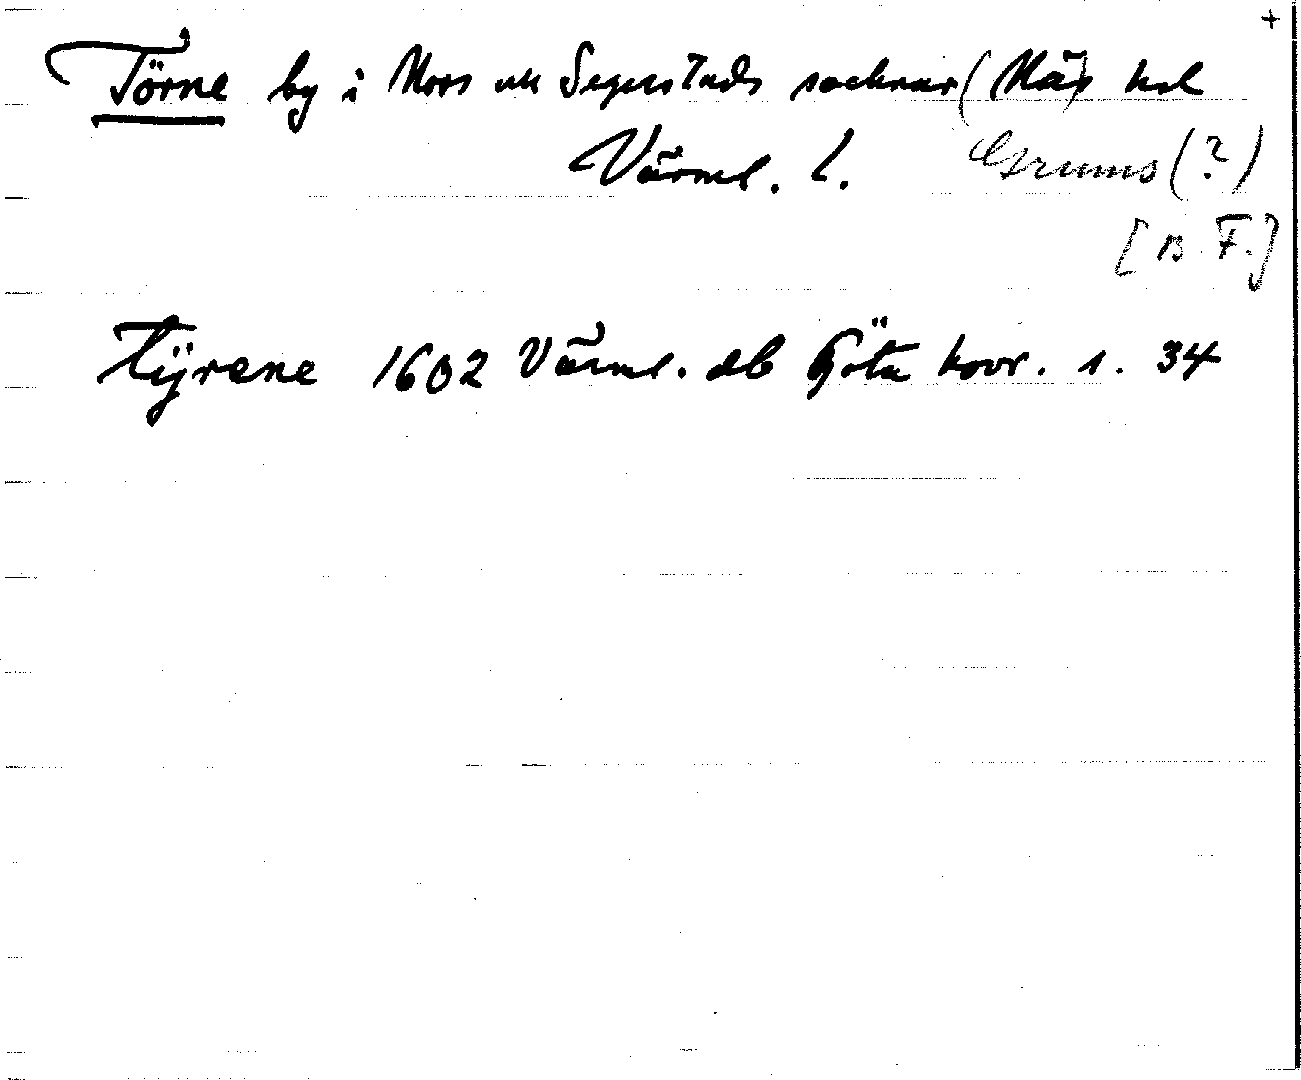 +
Törne by i Nors och Segerstads socknar (Näs) hd
Värml. l. Grums (?)
[B. F.]
Tÿrene 1602 Värml. äb Göta hovr. s. 34